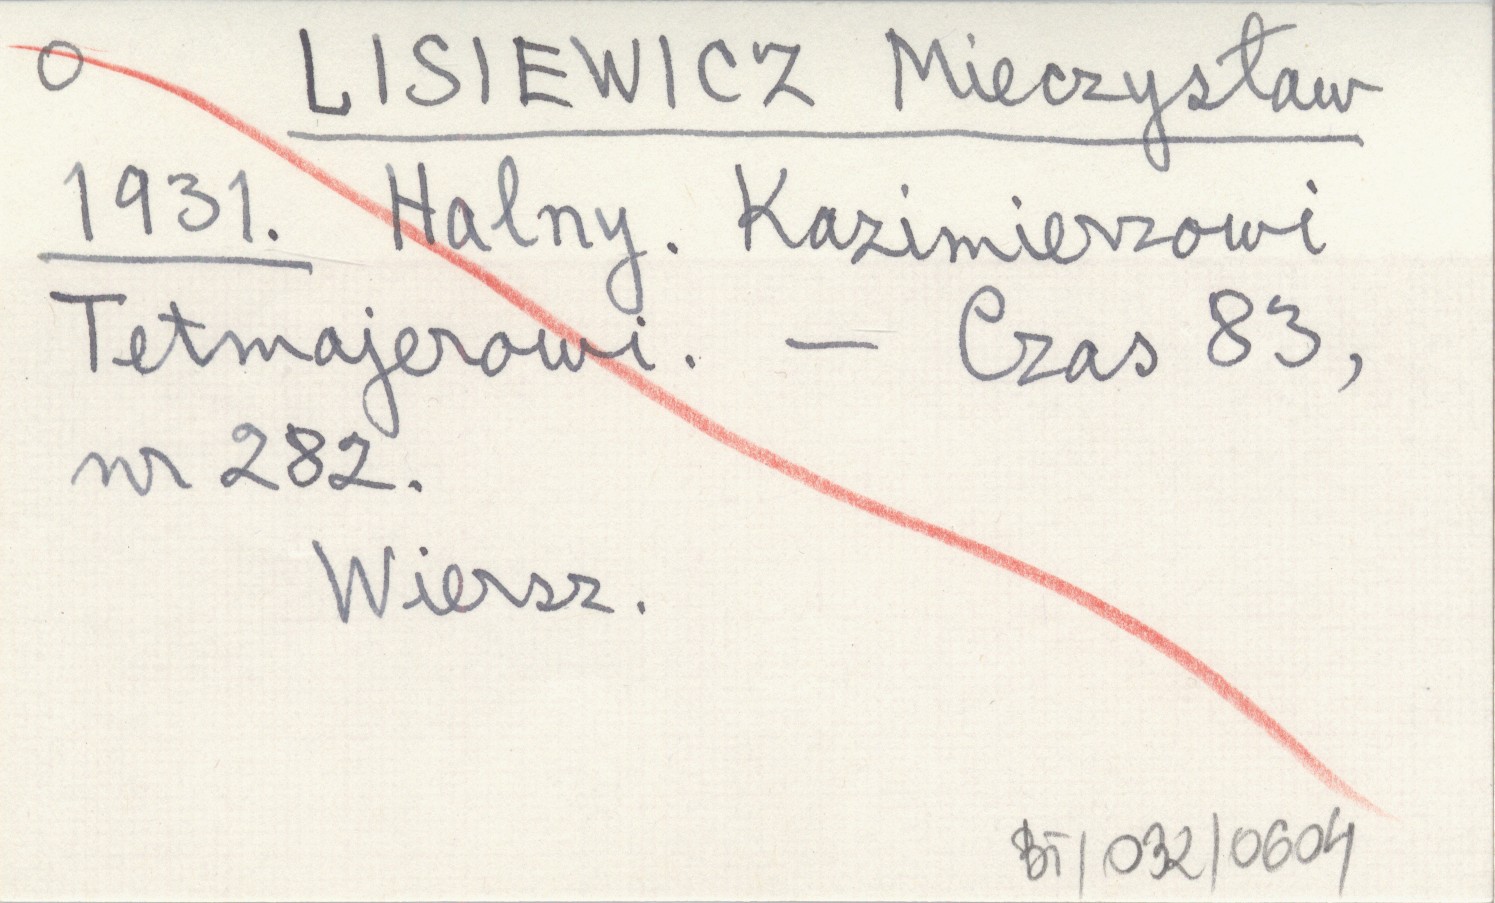 O LISIEWICZ Mieczysław
1931. Halny. Kazimierzowi
Tetmajerowi. — Czas 83,
nr 282.
Wiersz.
BT/032/0604